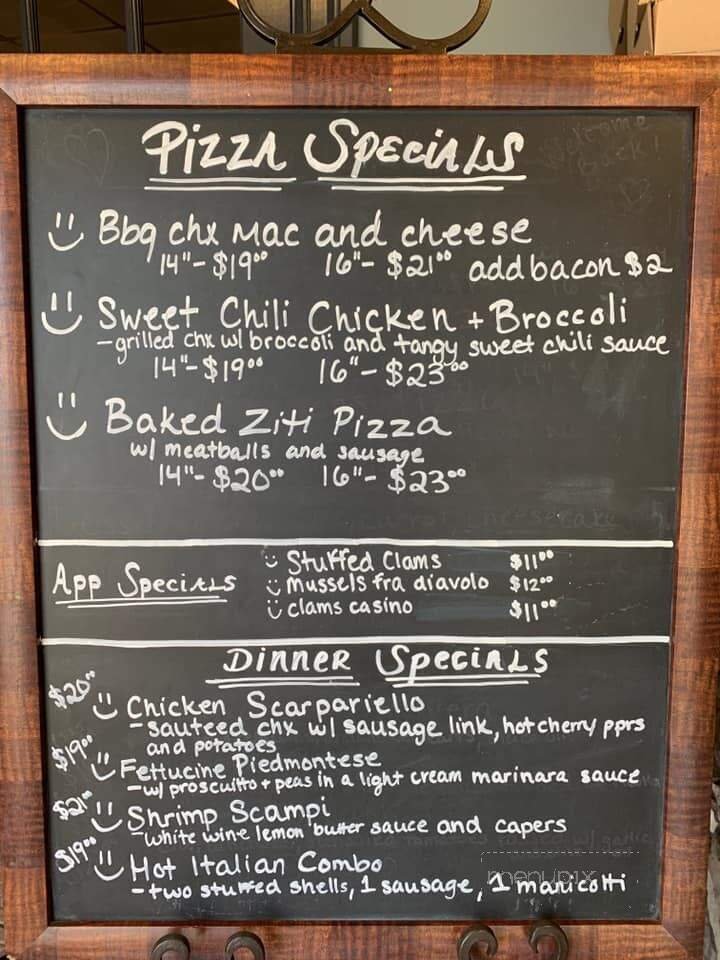 Pizza Specials
Bbq chx Mac and cheese
14"-$19⁰⁰ 16"-$21⁰⁰ add bacon $2
Sweet Chili Chicken + Broccoli
-grilled chx w/ broccoli and tangy sweet chili sauce
14"-$19⁰⁰ 16"-$23⁰⁰
Baked Ziti Pizza
w/ meatballs and sausage
14"-$20⁰⁰ 16"-$23⁰⁰
App Specials
Stuffed Clams $11⁰⁰
mussels fra diavolo $12⁰⁰
clams casino $11⁰⁰
Dinner Specials
$20⁰⁰ Chicken Scarpariello
-sauteed chx w/ sausage link, hot cherry pprs
and potatoes
$19⁰⁰ Fettucine Piedmontese
-w/ proscuitto + peas in a light cream marinara sauce
$21⁰⁰ Shrimp Scampi
-white wine lemon butter sauce and capers
$19⁰⁰ Hot Italian Combo
-two stuffed shells, 1 sausage, 1 manicotti
menupix
Welcome
Back!